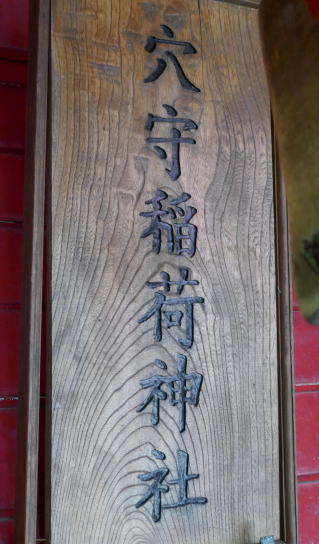 穴守稲荷神社